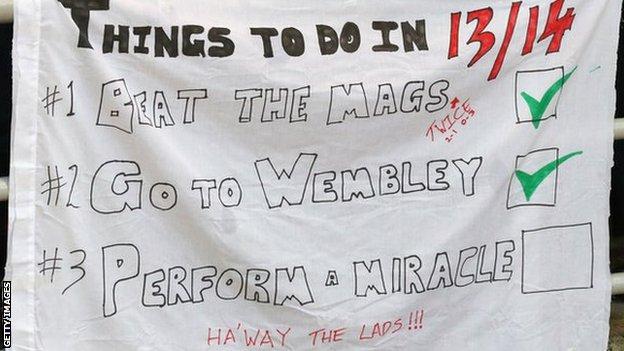 THINGS TO DO IN 13/14
#1 BEAT THE MAGS
TWICE
2-1 0-3
#2 GO TO WEMBLEY
#3 PERFORM A MIRACLE
HA'WAY THE LADS!!!
GETTY IMAGES